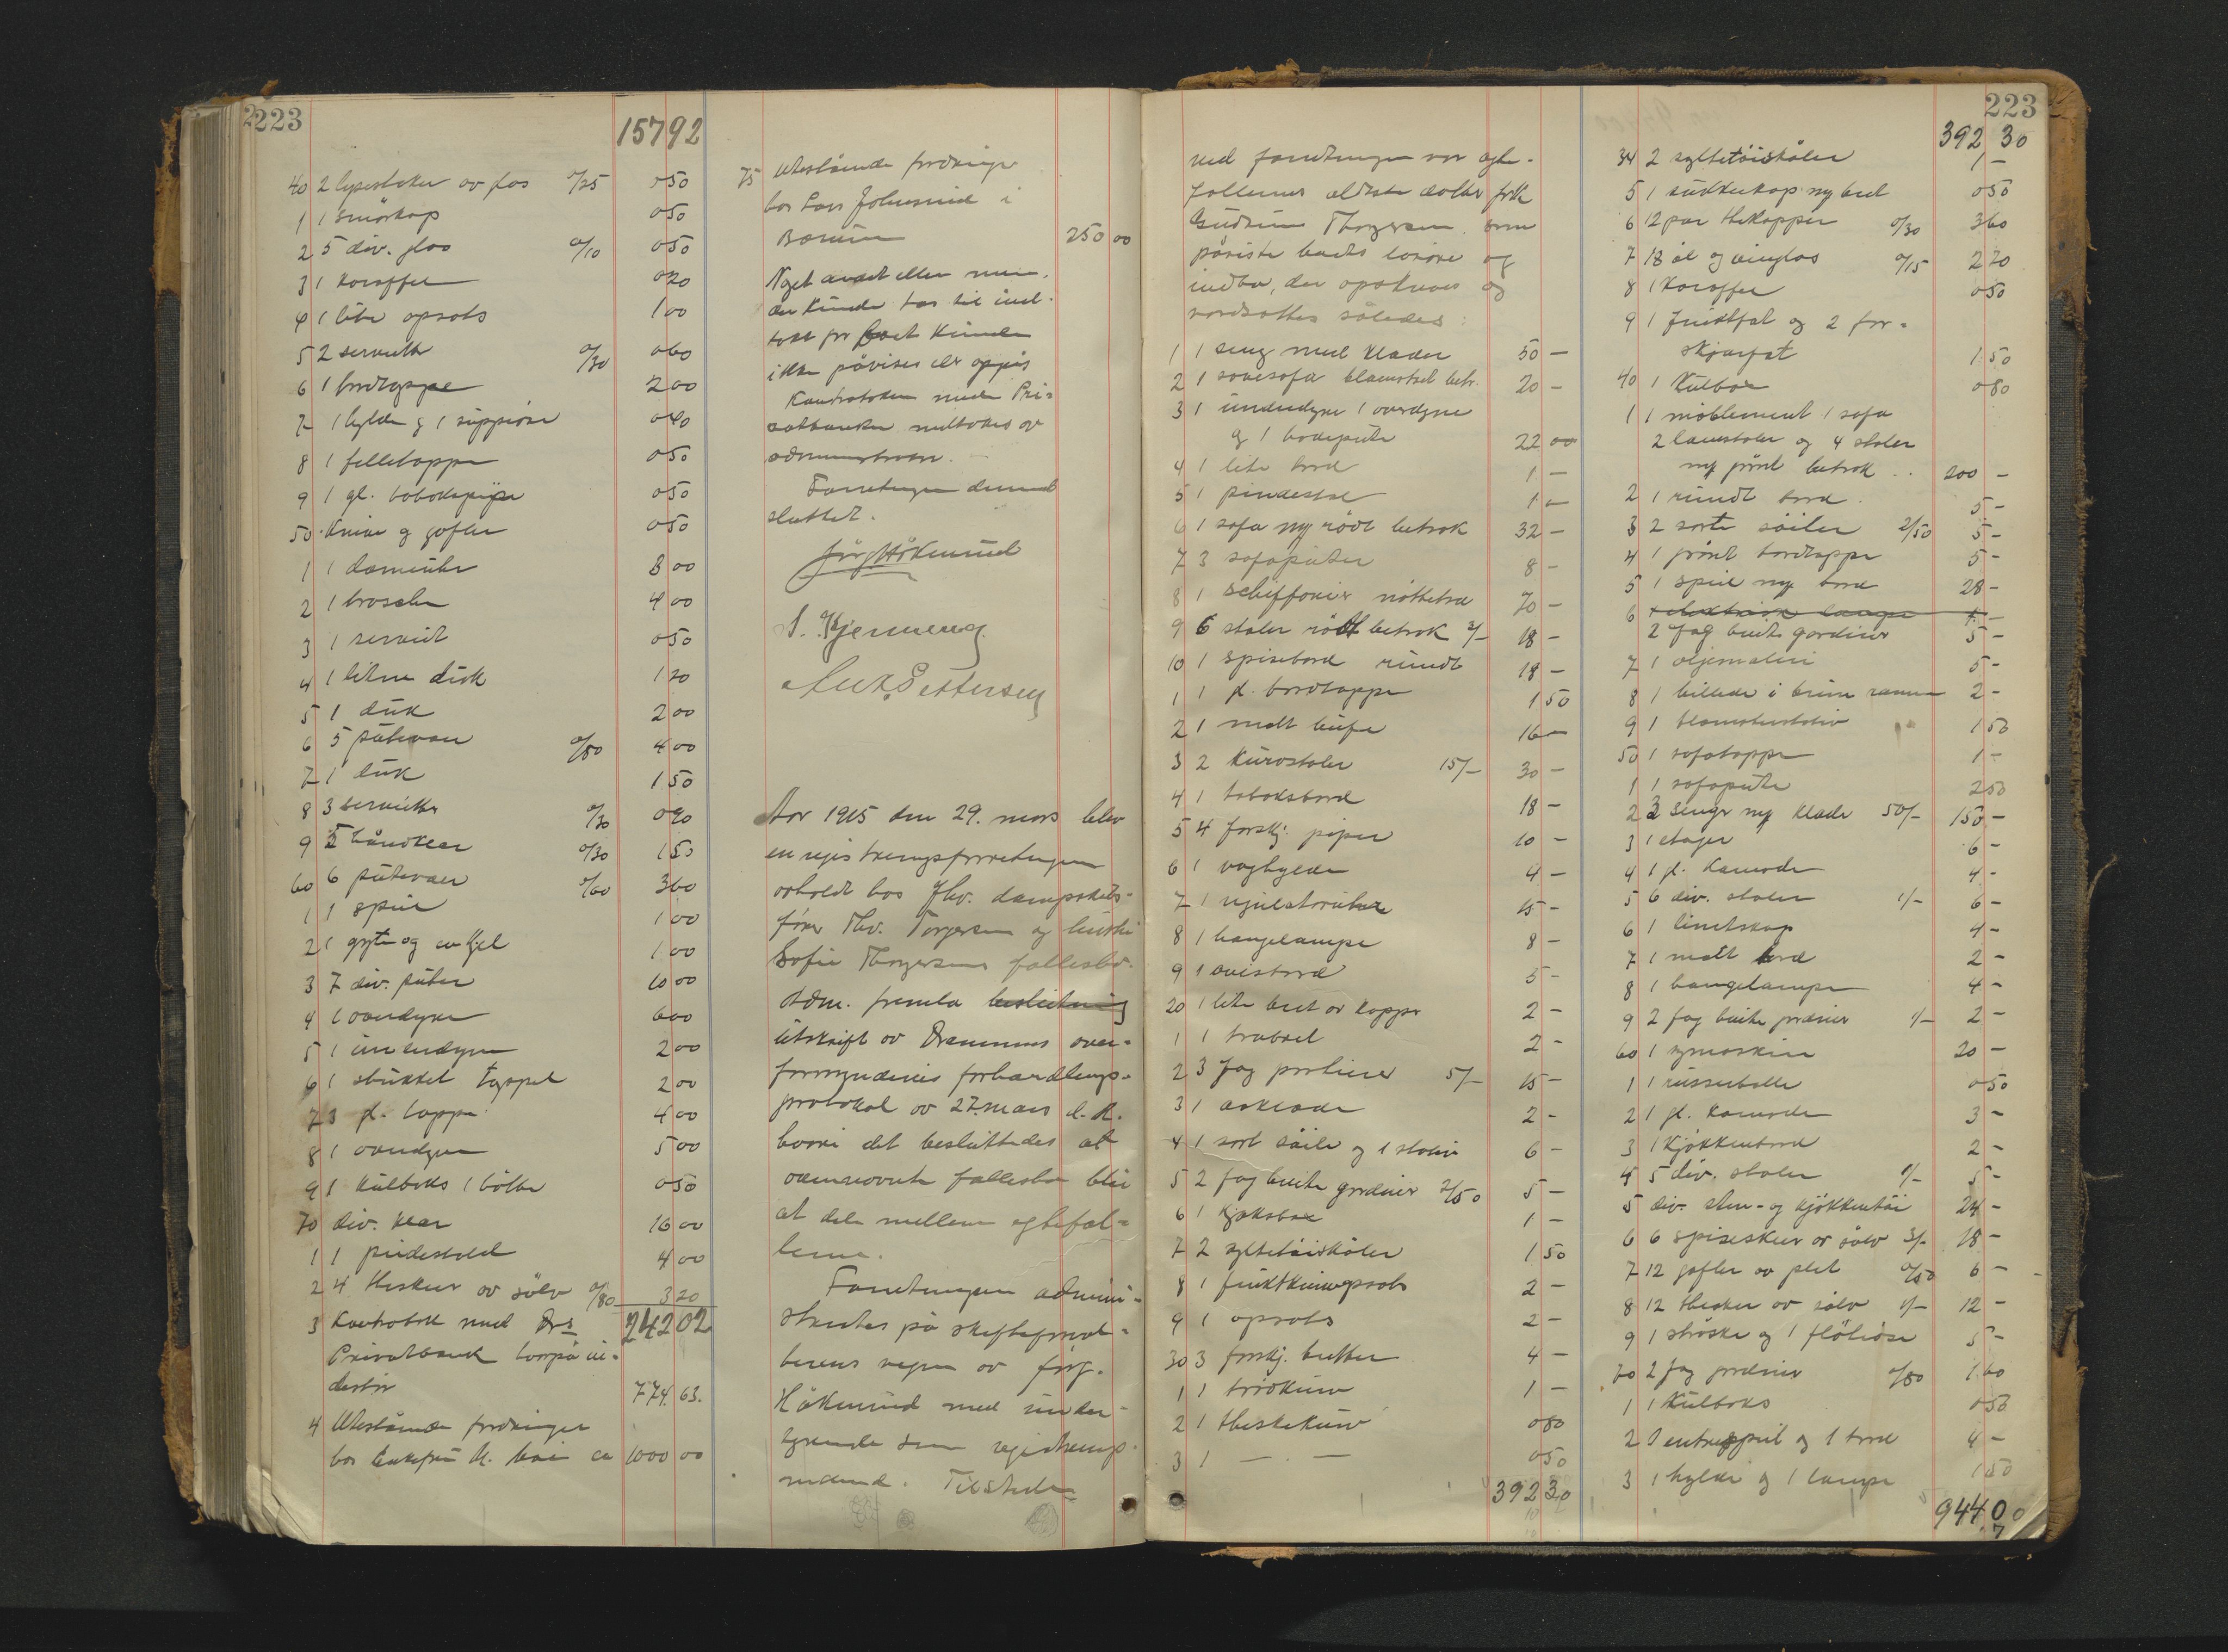 223
15792
40 2 lysestaker av glas 0/25 0 50
1 1 smörkop 0 50
2 5 div. glas 0/10 0 50
3 1 karaffel 0 20
4 1 lite opsats 1 00
5 2 servietter 0/30 0 60
6 1 bordteppe 2 00
7 1 hylde og 1 0 40
8 1 filleteppe 0 50
9 1 gl. tobakspipe 0 50
50 Kniver og gafler 0 50
1 1 dameuhr 8 00
2 1 brosche 4 00
3 1 serviet 0 50
4 1 liten duk 1 20
5 1 duk 2 00
6 5 putevar 0/80 4 00
7 1 duk 1 50
8 3 servietter 0/30 0 90
9 5 håndklær 0/30 1 50
60 6 putevaer 0/60 3 60
1 1 speil 1 00
2 1 gryte og en kjel 1 00
3 7 div. puter 10 00
4 1 overdyne 6 00
5 1 underdyne 2 00
6 1 stukket teppe 2 00
7 3 gl. tepper 4 00
8 1 overdyne 5 00
9 1 kulboks 1 bötte 0 50
70 div. klær 16 00
1 1 pindestol 4 00
2 4 theskeer av sölv 0/80 3 20
3 Kontrabok med Drs 24202
Privatbank hvorpå in-
destår 774.63.
4 Utestående fordringer
hos M. ca 1000 00
75 Utestående fordringer
hos Lars i
Bærum 250 00
Noget andet eller mere
der kunde tas til ind-
tekt for boet kunde
ikke påvises eller opgis
Kontraboken med Pri-
vatbanken mottokes av
administrator.
Forretningen dermed
sluttet.
Jörg Håkenrud
S. Kjennerud
Ant. Pettersen
Aar 1915 den 29. mars blev
en registreringsforretning
avholdt hos fhv. dampskibs-
förer Thv. Torgersen og hustru
Sofie Thorgersens fællesbo.
Adm. fremla beslutning
utskrift av Drammens over-
formynderies forhandlings-
protokol av 27. mars d.å.
hvori det besluttedes at
ovennævnte fællesbo blir
at dele mellem egtefæl-
lerne.
Forretningen admini-
streertes på skifteforval-
terens vegne av fuldm.
Håkenrud med under-
tegnede som registrerings-
mænd. Tilstede
223
ved forretningen var egte-
fællernes ældste datter frk.
Gudrun Thorgersen som
påviste boets lösöre og
indbo, der opskreves og
værdsattes således:
1 1 seng med klæder 50 -
2 1 sovesofa blomstret betr. 20 -
3 1 underdyne 1 overdyne
og 1 hodepute 22 00
4 1 lite bord 1 -
5 1 pindestol 1 -
6 1 sofa m/ rödt betræk 32 -
7 3 sofaputer 8 -
8 1 schiffonier nöttetræ 70 -
9 6 stoler rödt betræk 3/- 18 -
10 1 spisebord rundt 18 -
1 1 gl. bordteppe 1 50
2 1 malt buffe 16 -
3 2 kurvstoler 15/- 30 -
4 1 tobaksbord 18 -
5 4 forskj. piper 10 -
6 1 væghylde 4 -
7 1 regulatoruhr 15 -
8 1 hængelampe 8 -
9 1 avisbord 5 -
20 1 lite bret av kopper 2 -
1 1 2 -
2 3 fag portierer 5/- 15 -
3 1 2 -
4 1 sort söile og 1 stativ 6 -
5 2 fag hvite gardiner 2/50 5 -
6 1 kjeksbox 1 -
7 2 syltetöiskåler 1 50
8 1 2 -
9 1 opsats 2 -
30 3 forskj. bretter 4 -
1 1 brödkurv 1 -
2 1 theskekurv 0 80
3 1 - - 0 50
392 30
392 30
34 2 syltetöiskåler 1 -
5 1 sukkerkop m/ bret 0 50
6 12 par thekopper 0/30 3 60
7 18 öl og vinglas 0/15 2 70
8 1 karaffel 0 50
9 1 fruktfat og 2 for-
skjærfat 1 50
40 1 kulbox 0 80
1 1 möblement 1 sofa
2 lænestoler og 4 stoler
m/ grönt betræk 200 -
2 1 rundt bord 5 -
3 2 sorte söiler 2/50 5 -
4 1 grönt bordteppe 5 -
5 1 speil m/ bord 28 -
6 1 elektrisk lampe
2 fag hvite gardiner 5 -
7 1 oljemaleri 5 -
8 1 billede i brun ramme 2 -
9 1 blomsterstativ 1 50
50 1 sofateppe 1 -
1 1 sofapute 2 50
2 3 senger m/ klæder 50/- 150 -
3 1 etager 6 -
4 1 gl. kommode 4 -
5 6 div. stoler 1/- 6 -
6 1 linetskap 4 -
7 1 malt bord 2 -
8 1 hængelampe 4 -
9 2 fag hvite gardiner 1/- 2 -
60 1 symaskin 20 -
1 1 0 50
2 1 gl. kommode 3 -
3 1 kjökkenbord 2 -
4 5 div. stoler 1/- 5 -
5 div. sten- og kjökkentöi 24 -
6 6 spiseskeer av sölv 3/- 18 -
7 12 gafler av plet 0/50 6 -
8 12 theskeer av sölv 1/- 12 -
9 1 ströske og 1 flöteöse 5 -
70 2 fag gardiner 0/80 1 60
1 1 kulboks 0 50
2 1 entrespeil og 1 bord 4 -
3 1 hylde og 1 lampe 1 50
944 00
7